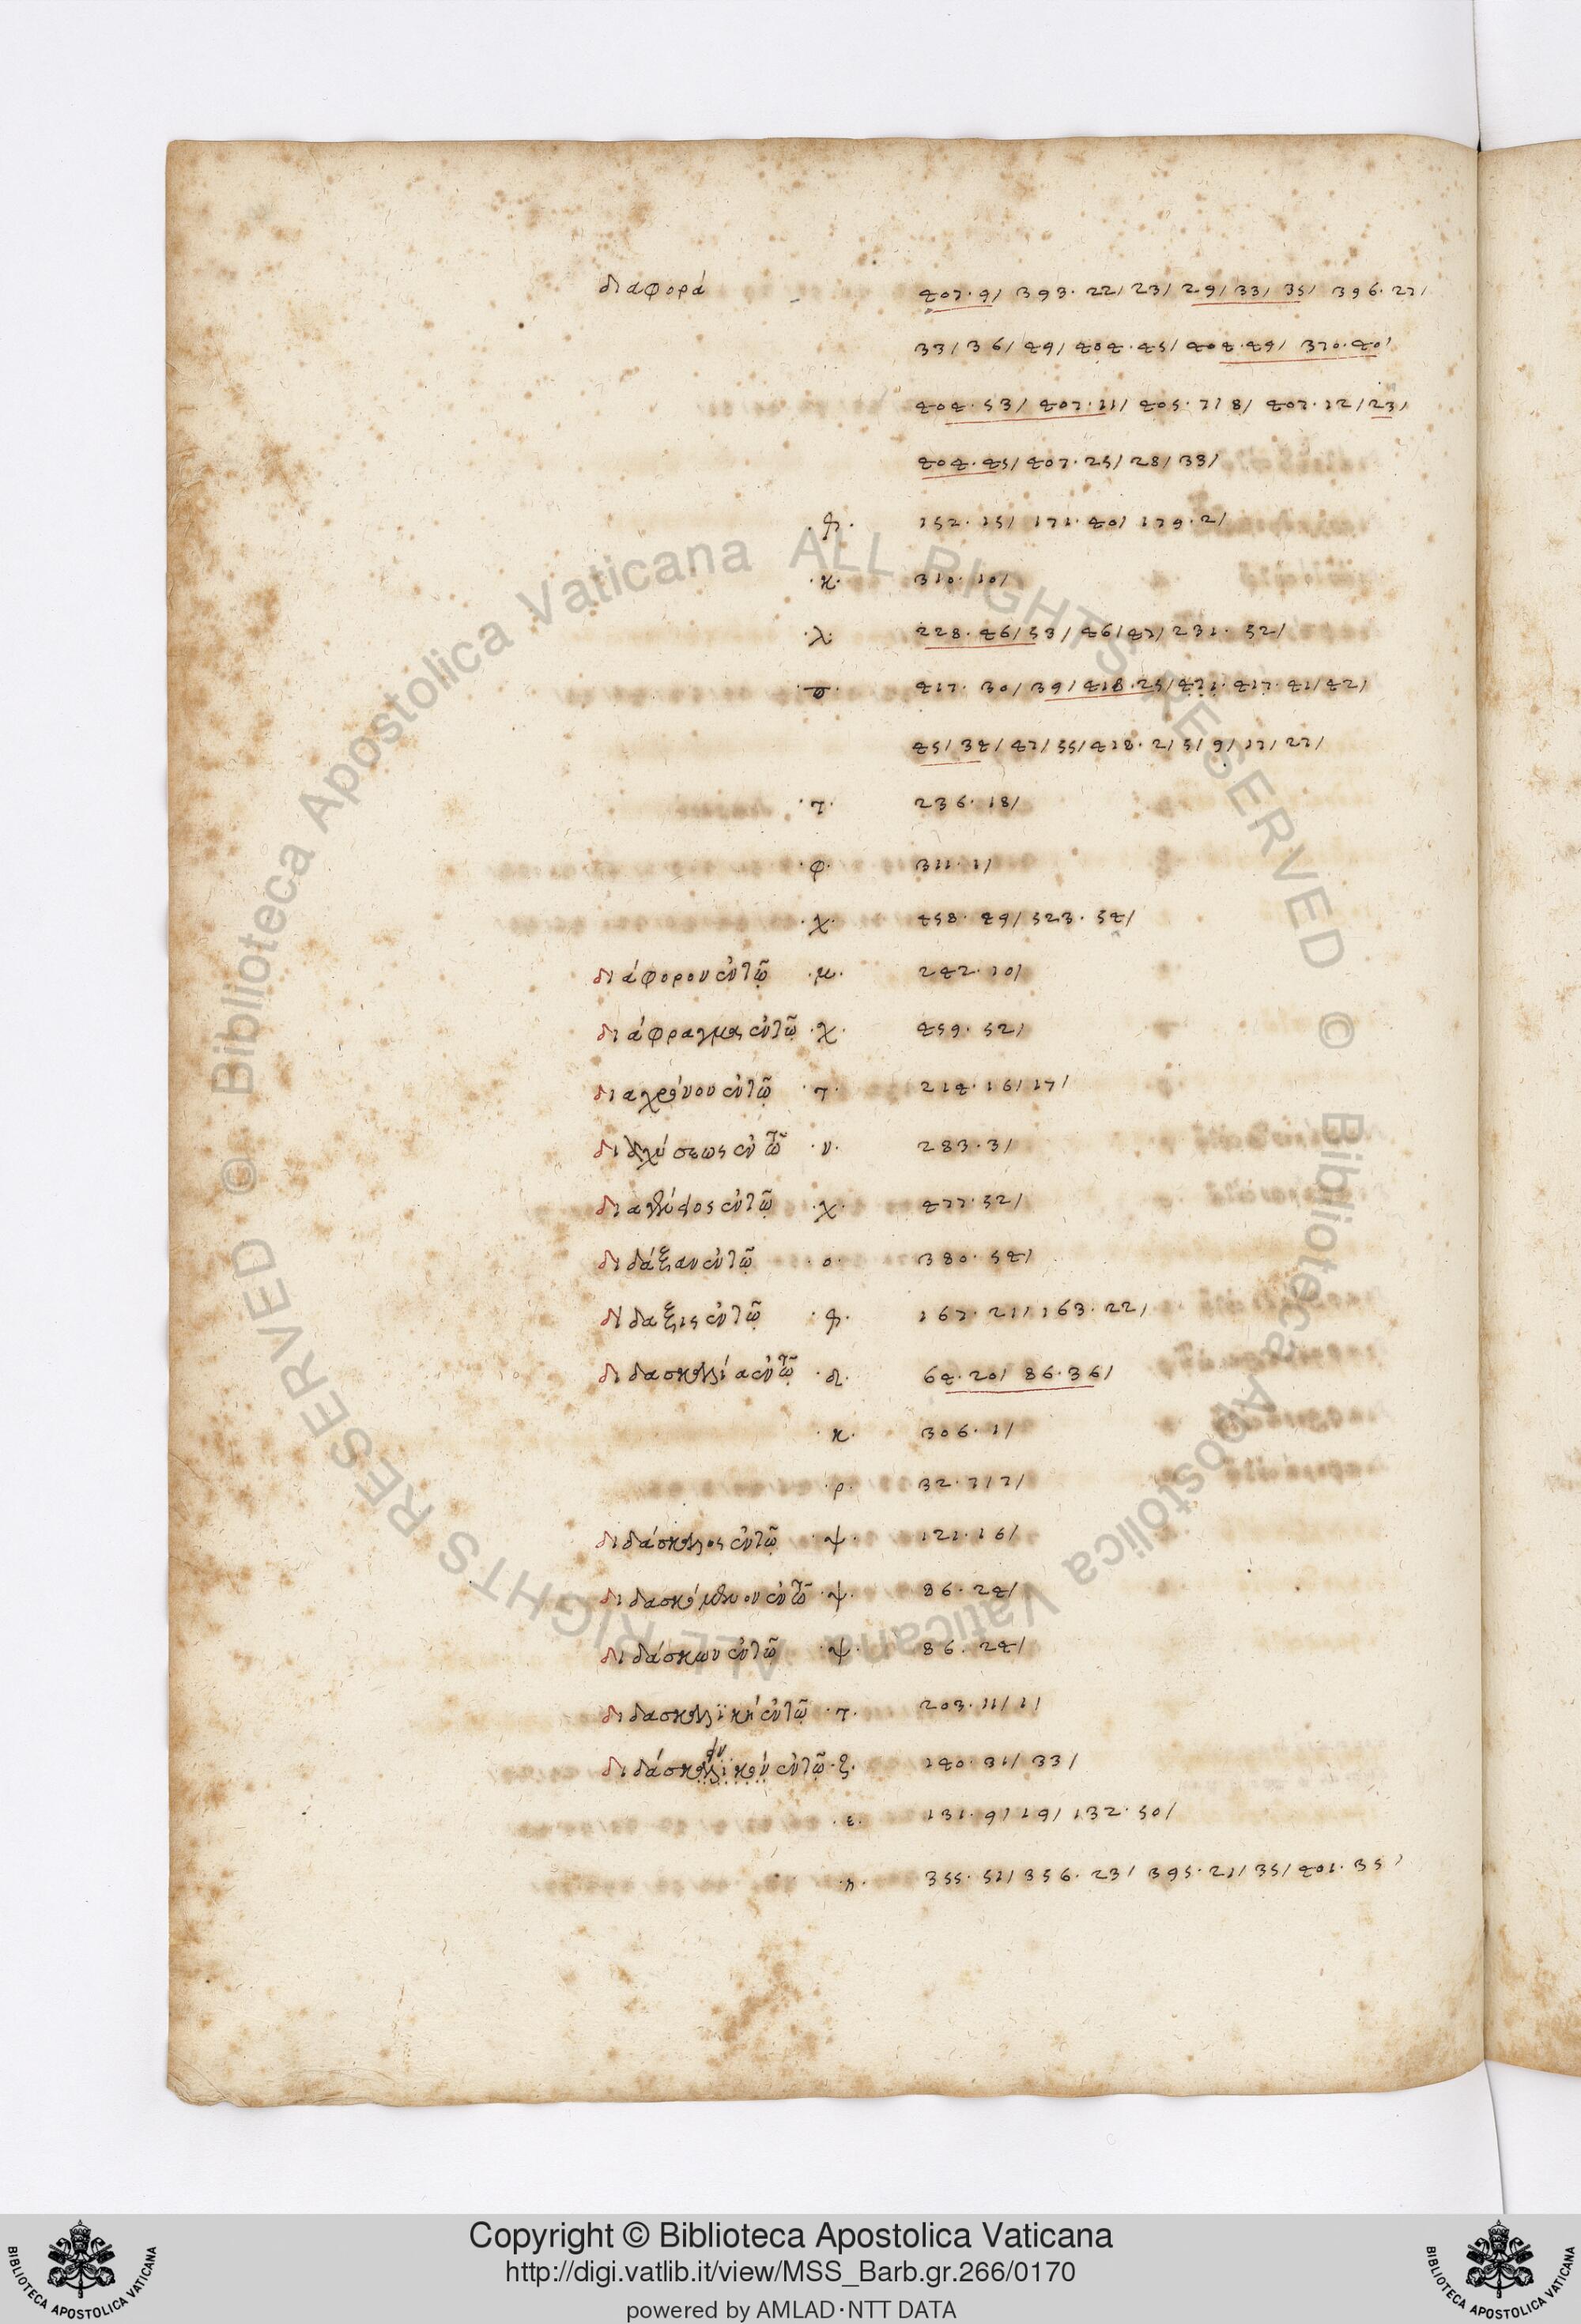 διαφορά 407·9/ 393·22/23/29/33/35/ 396·27/
33/36/49/404·45/404·49/ 370·40/
404·53/ 407·11/ 405·7/8/ 407·12/23/
404·45/407·25/28/33/
152·15/ 171·40/ 179·2/
·κ· 310·10/
·λ· 228·46/53/46/47/231·52/
417·30/39/418·25/471·417·41/42/
45/34/47/55/418·2/5/9/17/27/
·τ· 236·18/
·φ· 311·1/
·χ· 458·49/523·54/
διάφορον ἐν τῷ ·μ· 242·10/
διάφραγμα ἐν τῷ ·χ· 459·52/
διαχρόνου ἐν τῷ ·τ· 214·16/17/
διαχύσεως ἐν τῷ ·ν· 283·3/
ἐν τῷ ·χ· 477·52/
διδάξαν ἐν τῷ ·ο· 380·54/
δίδαξις ἐν τῷ 167·21/163·22/
διδασκαλία ἐν τῷ ·δ· 64·20/ 86·36/
·κ· 306·1/
·ρ· 32·7/7/
διδάσκαλος ἐν τῷ ·ψ· 121·16/
διδασκόμενον ἐν τῷ ·ψ· 86·24/
διδάσκων ἐν τῷ ·ψ· 86·24/
διδασκαλϊκή ἐν τῷ ·τ· 203·11/1/
ἐν τῷ ·ξ· 140·31/33/
·ε· 131·9/19/132·50/
355·51/356·23/ 395·21/35/401·35/
Copyright © Biblioteca Apostolica Vaticana
http://digi.vatlib.it/view/MSS_Barb.gr.266/0170
powered by AMLAD·NTT DATA
BIBLIOTECA APOSTOLICA VATICANA
BIBLIOTECA APOSTOLICA VATICANA
© Biblioteca Apostolica Vaticana ALL RIGHTS RESERVED © Biblioteca Apostolica Vaticana ALL RIGHTS RESERVED